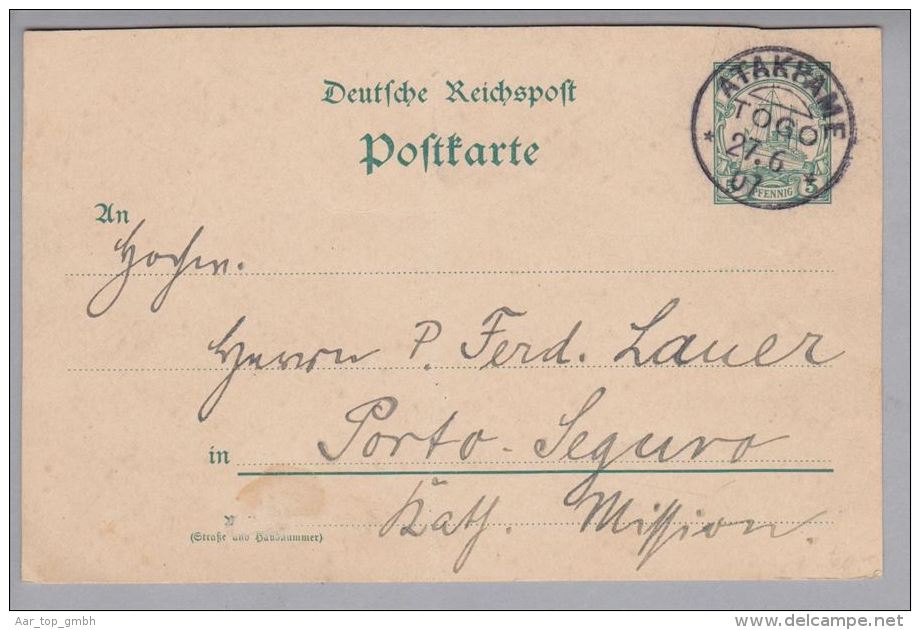 Deutsche Reichspost
Postkarte
ATAKPAME
TOGO
27.6
07
5 PFENNIG 5
An
Hochw.
Herrn P. Ferd. Lauer
in Porto-Seguro
Kath. Mission.
(Straße und Hausnummer)
Aar_top_gmbh
delcampe.net